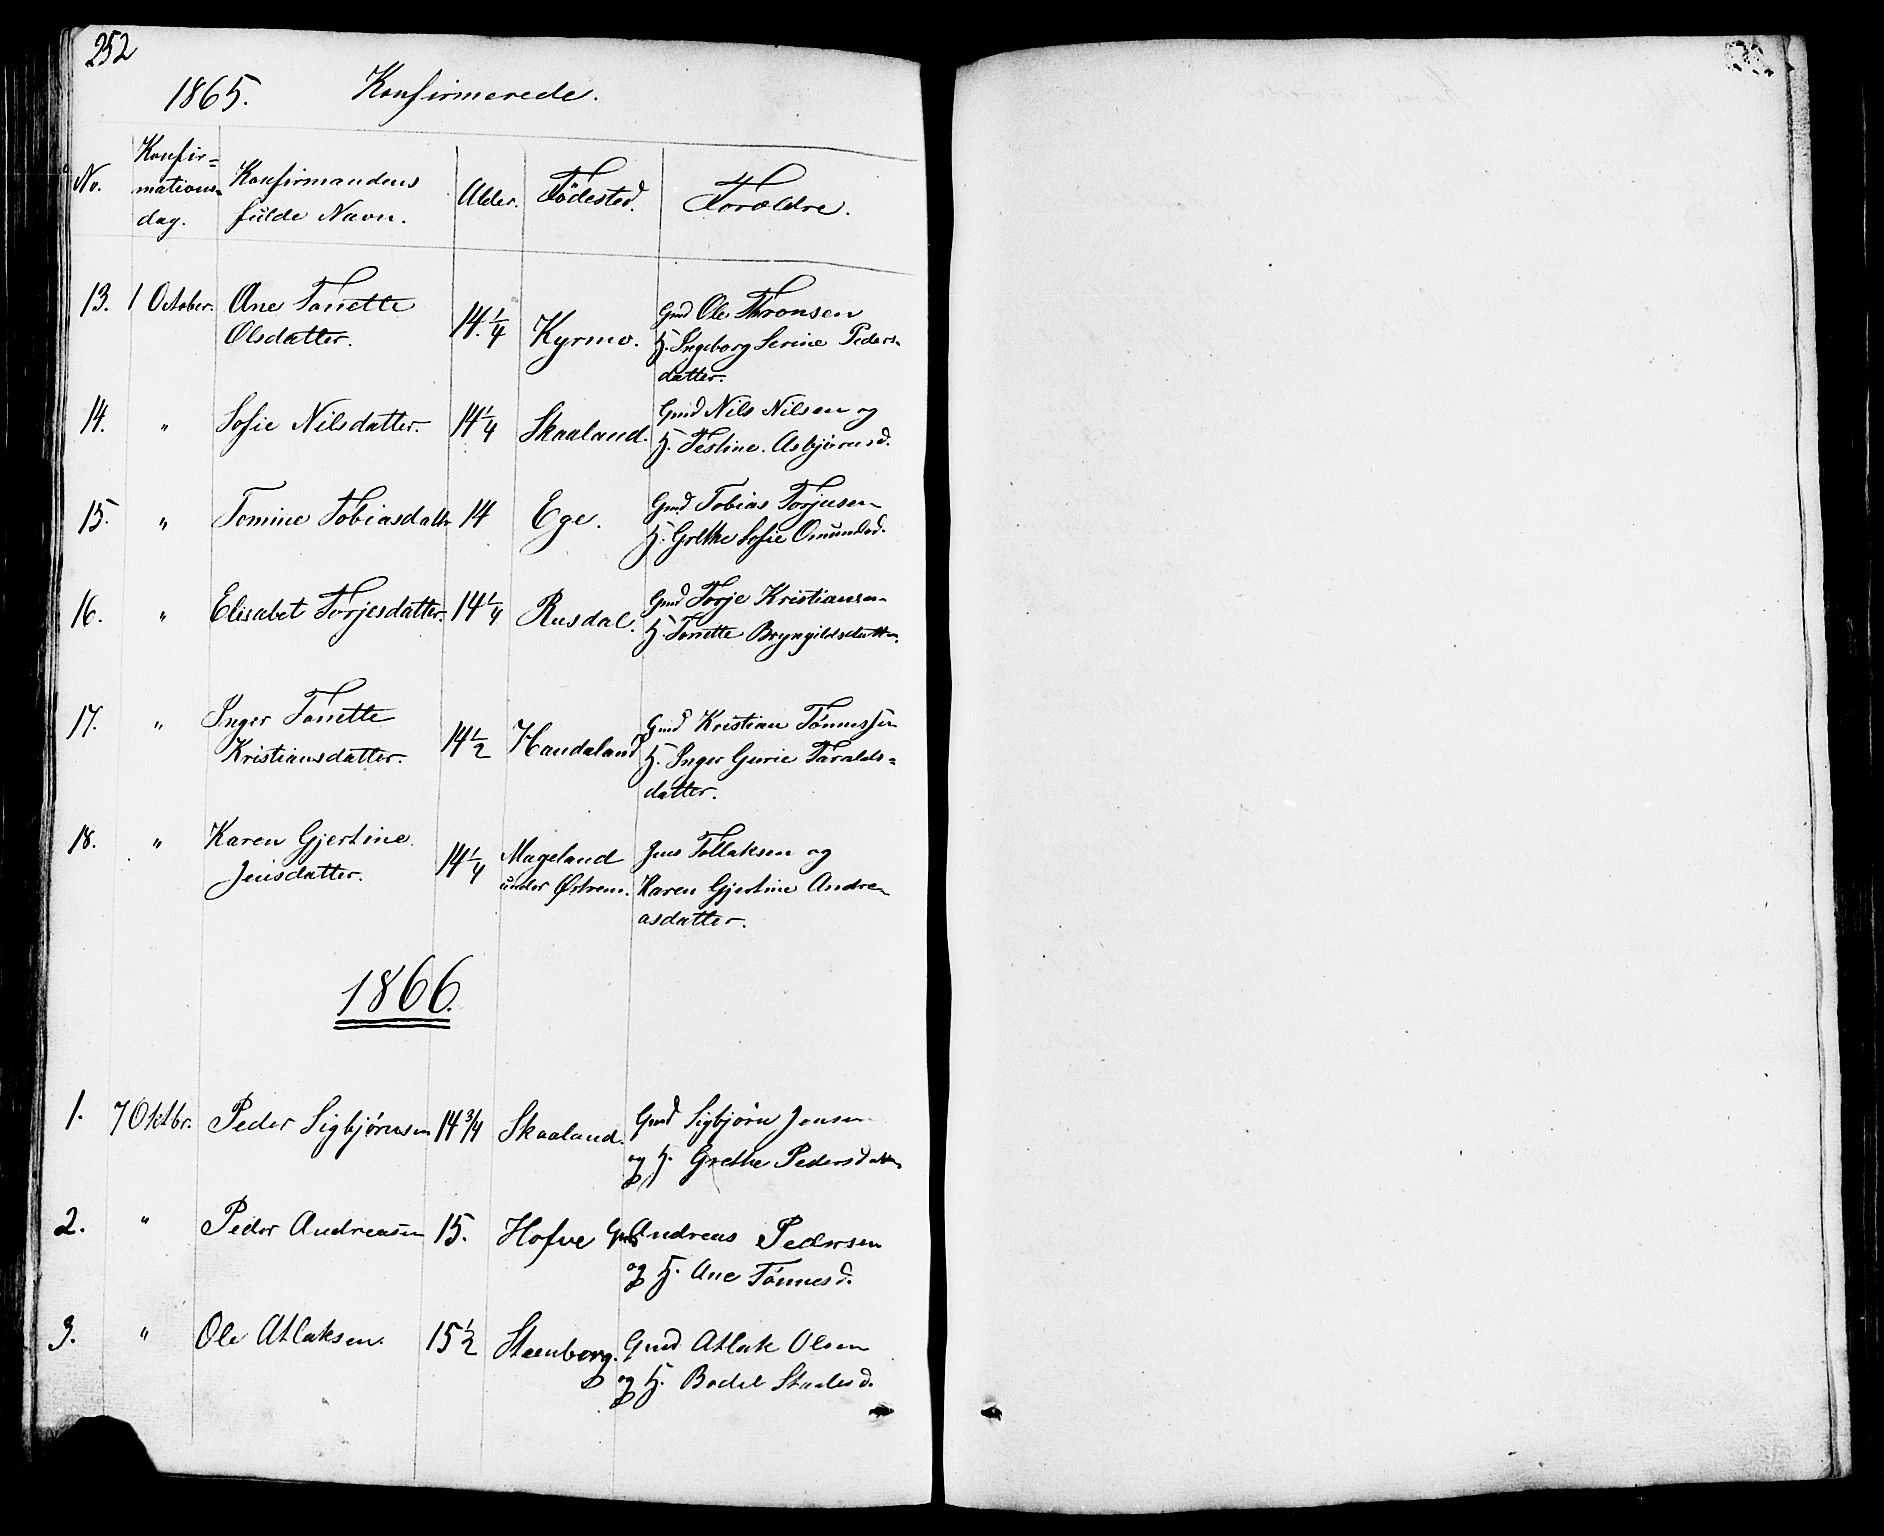 252
1865. Konfirmerede.
No. Konfir= mations- dag. Konfirmandens fulde Navn. Alder. Födested. Forældre.
13. 1 October. Ane Tonette Olsdatter. 14 1/4 Kyrmo. Gmd Ole Thronsen
H. Ingeborg Serine Peders-
datter.
14. " Sofie Nilsdatter. 14 1/4 Skaaland. Gmd Nils Nilsen og
H. Testine Asbjörnsd.
15. " Tomine Tobiasdatter 14 Ege. Gmd Tobias Torjusen
H. Grethe Sofie Omundsd.
16. " Elisabet Torjesdatter. 14 1/4 Rusdal. Gmd Torje Kristiansen
H. Tonette Bryngildsdatter.
17. " Inger Tonette Kristiansdatter. 14 1/2 Haudaland Gmd Kristian Tönnessen
H. Inger Gurie Taralds=
datter.
18. " Karen Gjertine Jensdatter. 14 1/4 Mageland under Østrem. Jens Tollaksen og
Karen Gjertine Andre-
asdatter.
1866.
1. 7 Oktbr. Peder Sigbjörnsen 14 3/4 Skaaland. Gmd Sigbjörn Jonsen
og H. Grethe Pedersdatter
2. " Peder Andreasen 15. Hofve Gmd Andreas Pedersen
og H. Ane Tönnesd.
3. " Ole Atlaksen. 15 1/2 Steenberg. Gmd Atlak Olsen
og H. Bodil